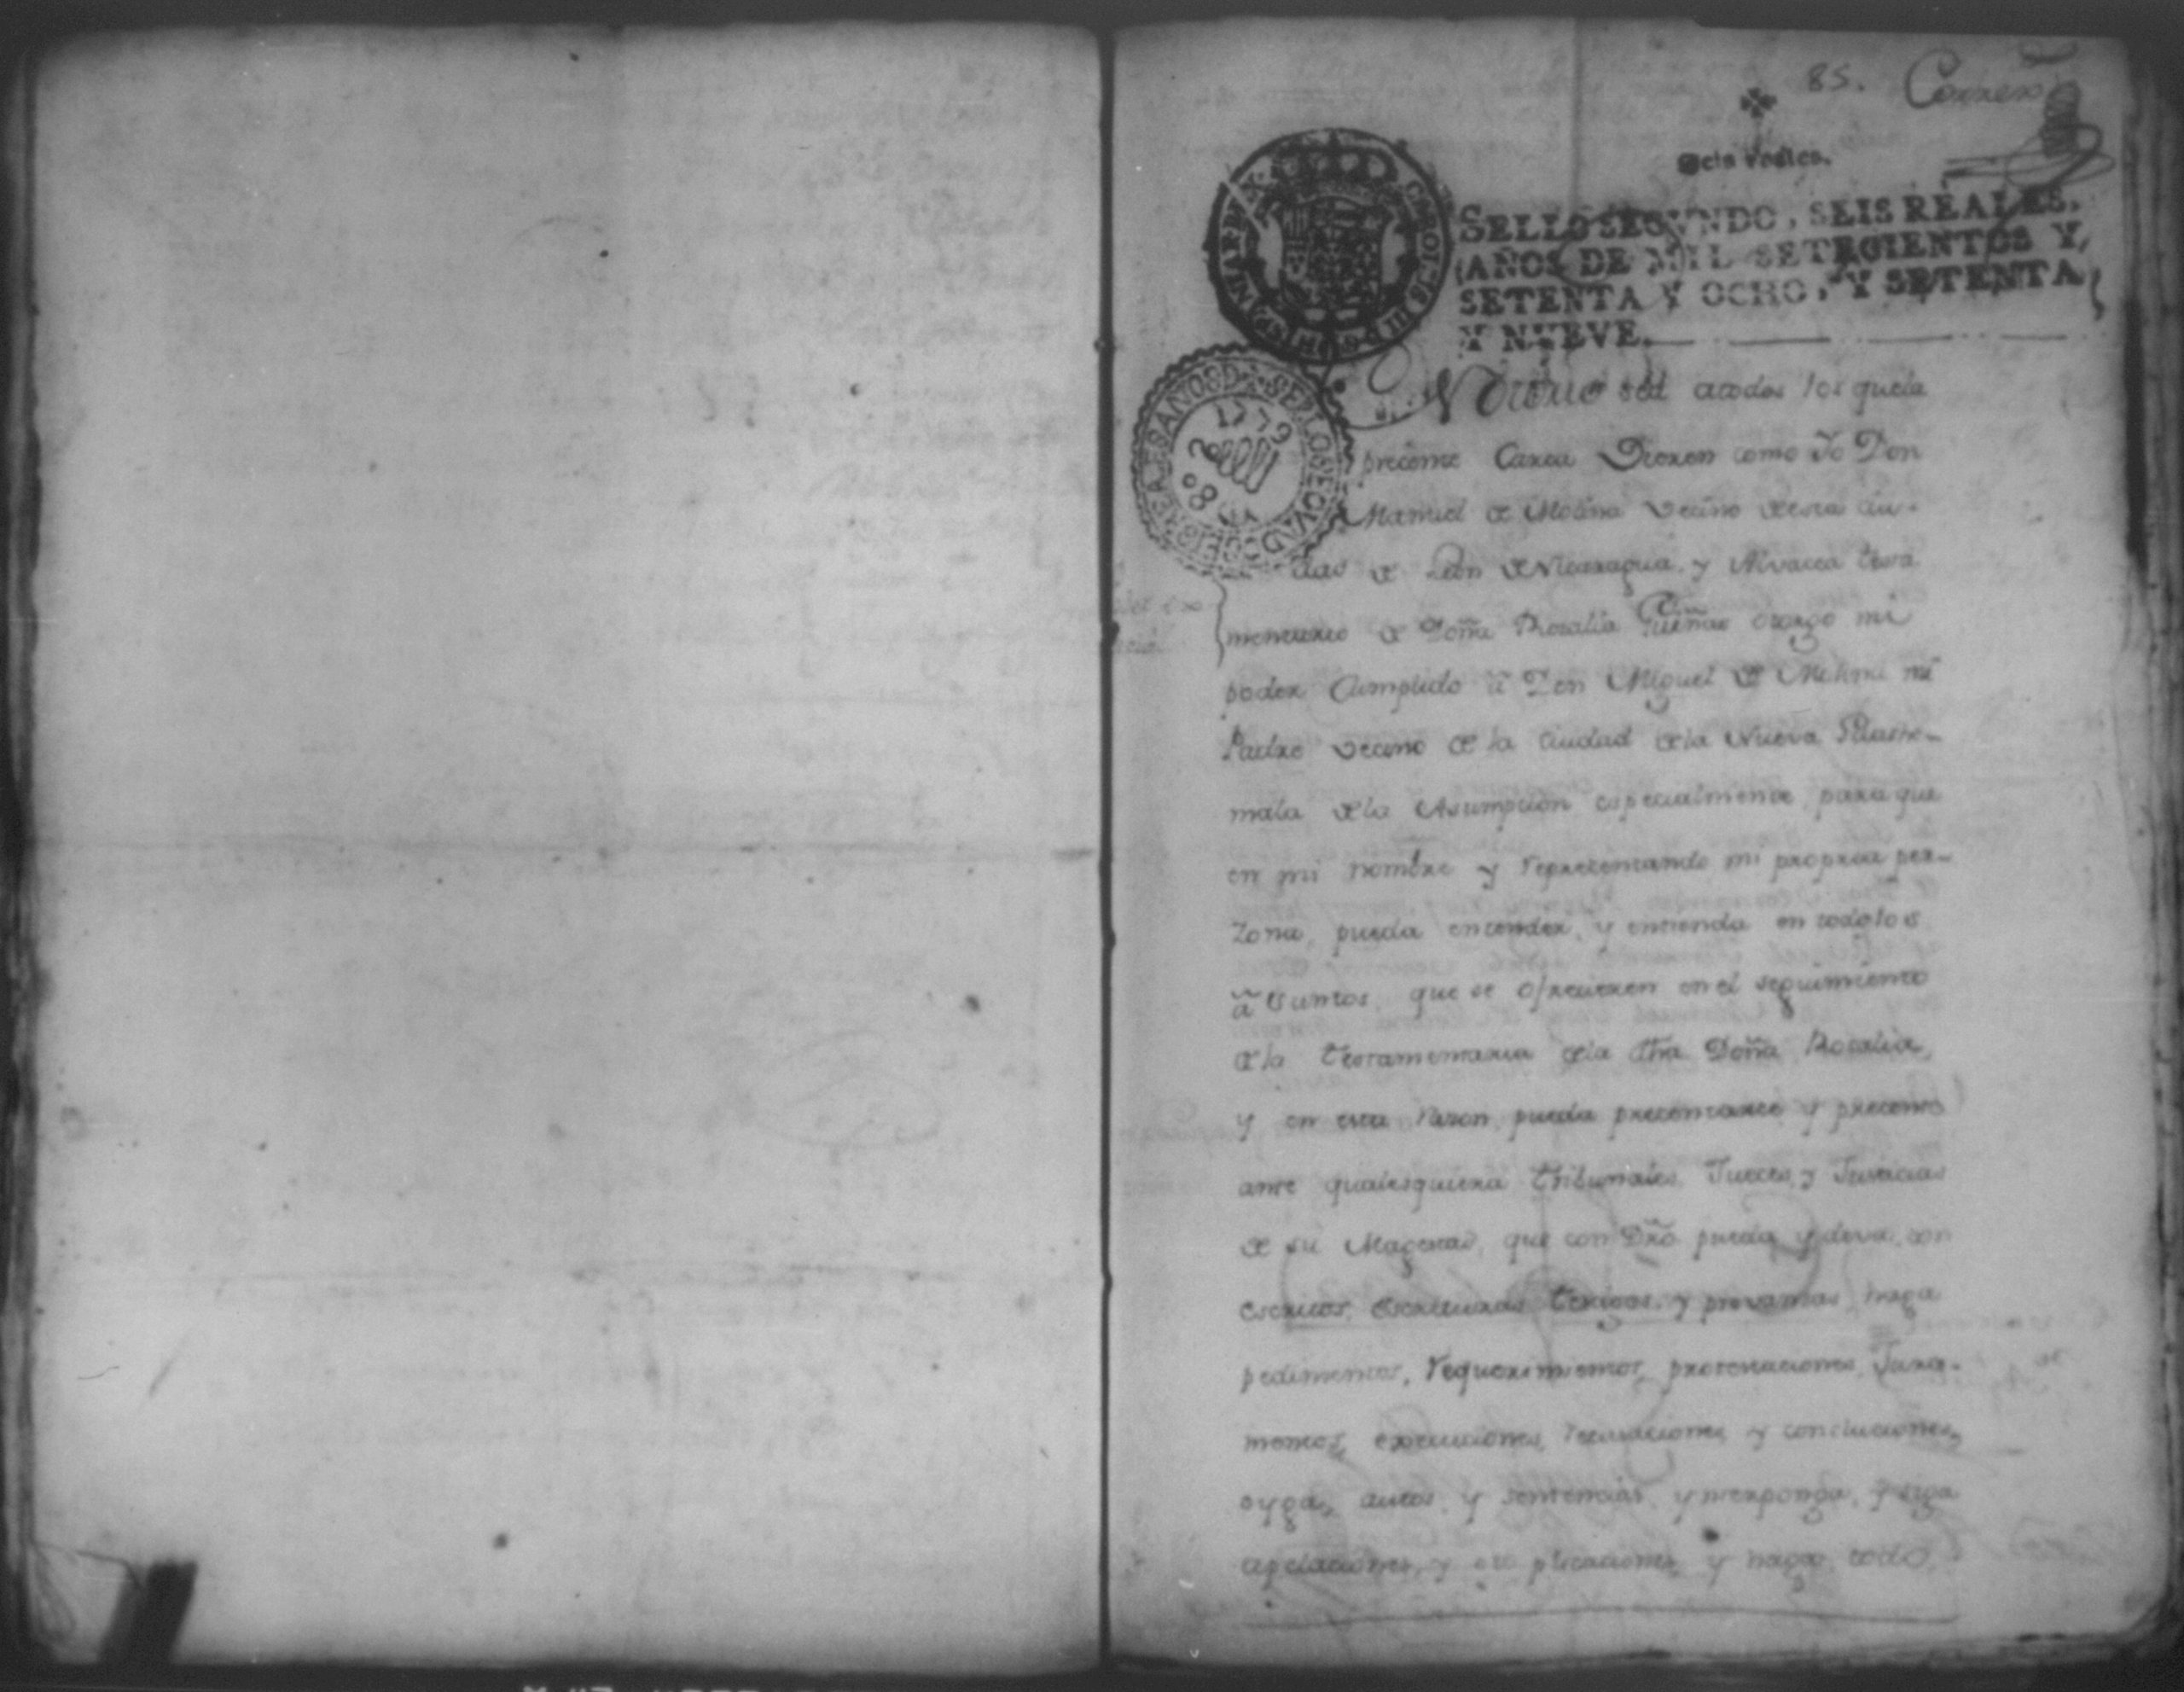 85. Carrera
Seis reales.
SELLO SEGVNDO, SEIS REALES,
AÑOS DE MIL SETECIENTOS Y
SETENTA Y OCHO, Y SETENTA
Y NUEVE.
CAROLUS III D G HISPANIAR REX
SELLO SEGVNDO SEIS REALES AÑOS D
1779 80
Notorio sea atodos los quela
precente Carta Vieren como Yo Don
Manuel de Molina Vecino deesta Ciu-
dad de Leon de Nicaragua, y Alvacea testa
mentario de Doña Rosalia otorgo mi
poder Cumplido â Don Miguel de Molina mi
Padre vecino de la Ciudad dela Nueva Guathe-
mala dela Asumpcion especialmente para que
en mi nombre y representando mi propria per-
zona, pueda entender, y entienda en todos los
âsuntos, que se ofrecieren en el seguimiento
dela testamentaria dela dha Doña Rosalia,
y en esta razon, pueda precentarse y precente
ante qualesquiera tribunales, Jueces, y Justicias
de su Magestad, que con dro pueda y deva, con
escritos, escrituras, testigos, y provanzas, haga
pedimentos, requerimientos, protestaciones, Jura-
mentos, execuciones, recusaciones, y concluciones,
oyga, autos, y sentencias, ynterponga, y siga
apelaciones, y suplicaciones, y haga todo